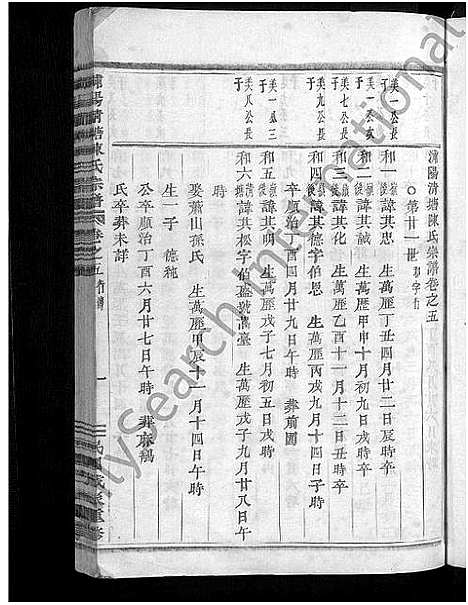 浦陽清塘陳氏宗譜卷之五
第廿一世 和字行
美一公長子 和一 諱其忠 生萬歷丁丑四月廿二日辰時卒
美一公次子 和二 諱其誠 生萬歷甲申十月初九日戌時卒
美七公長子 和三 諱其化 生萬歷乙酉十一月十二日丑時卒
美九公長子 和四 諱其德字伯恩 生萬歷丙戌九月初四日子時
卒順治酉四月廿九日午時 葬前園
美一公三子 和五 諱其明 生萬歷戊子七月初五日戌時
美八公長子 和六 諱其松字伯盛號萬臺 生萬歷戊子九月廿八日午
時
娶蕭山孫氏 生萬歷甲辰十一月十四日午時
生一子 德純
公卒順治丁酉六月廿七日午時 葬麻塢
氏卒葬未詳
浦陽清塘陳氏宗譜 卷之五 行譜
一
MySearch International